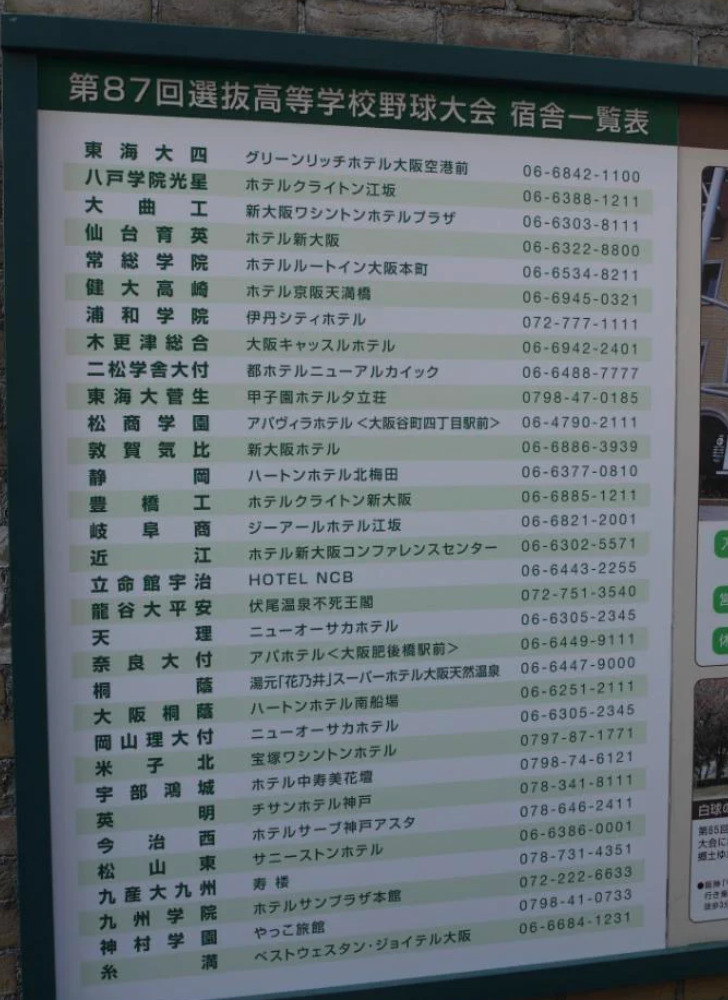 第87回選抜高等学校野球大会 宿舎一覧表
東海大四 グリーンリッチホテル大阪空港前 06-6842-1100
八戸学院光星 ホテルクライトン江坂 06-6388-1211
大曲工 新大阪ワシントンホテルプラザ 06-6303-8111
仙台育英 ホテル新大阪 06-6322-8800
常総学院 ホテルルートイン大阪本町 06-6534-8211
健大高崎 ホテル京阪天満橋 06-6945-0321
浦和学院 伊丹シティホテル 072-777-1111
木更津総合 大阪キャッスルホテル 06-6942-2401
二松学舎大付 都ホテルニューアルカイック 06-6488-7777
東海大菅生 甲子園ホテル夕立荘 0798-47-0185
松商学園 アパヴィラホテル<大阪谷町四丁目駅前> 06-4790-2111
敦賀気比 新大阪ホテル 06-6886-3939
静岡 ハートンホテル北梅田 06-6377-0810
豊橋工 ホテルクライトン新大阪 06-6885-1211
岐阜商 ジーアールホテル江坂 06-6821-2001
近江 ホテル新大阪コンファレンスセンター 06-6302-5571
立命館宇治 HOTEL NCB 06-6443-2255
龍谷大平安 伏尾温泉不死王閣 072-751-3540
天理 ニューオーサカホテル 06-6305-2345
奈良大付 アパホテル<大阪肥後橋駅前> 06-6449-9111
桐蔭 湯元「花乃井」スーパーホテル大阪天然温泉 06-6447-9000
大阪桐蔭 ハートンホテル南船場 06-6251-2111
岡山理大付 ニューオーサカホテル 06-6305-2345
米子北 宝塚ワシントンホテル 0797-87-1771
宇部鴻城 ホテル中寿美花壇 0798-74-6121
英明 チサンホテル神戸 078-341-8111
今治西 ホテルサーブ神戸アスタ 078-646-2411
松山東 サニーストンホテル 06-6386-0001
九産大九州 寿楼 078-731-4351
九州学院 ホテルサンプラザ本館 072-222-6633
神村学園 やっこ旅館 0798-41-0733
糸満 ベストウェスタン・ジョイテル大阪 06-6684-1231
営
休
白球の
第85回
大会に
郷土ゆ